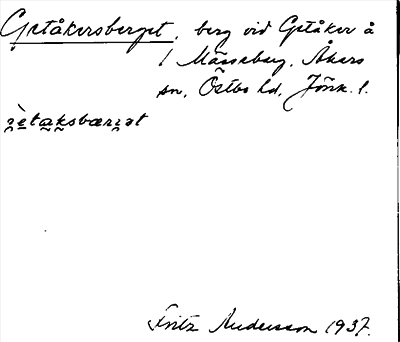 Getåkersberget, berg vid Getåker å
/ Mässeberg, Åkers
sn, Östbo hd, Jönk. l.
Fritz Andersson 1937.